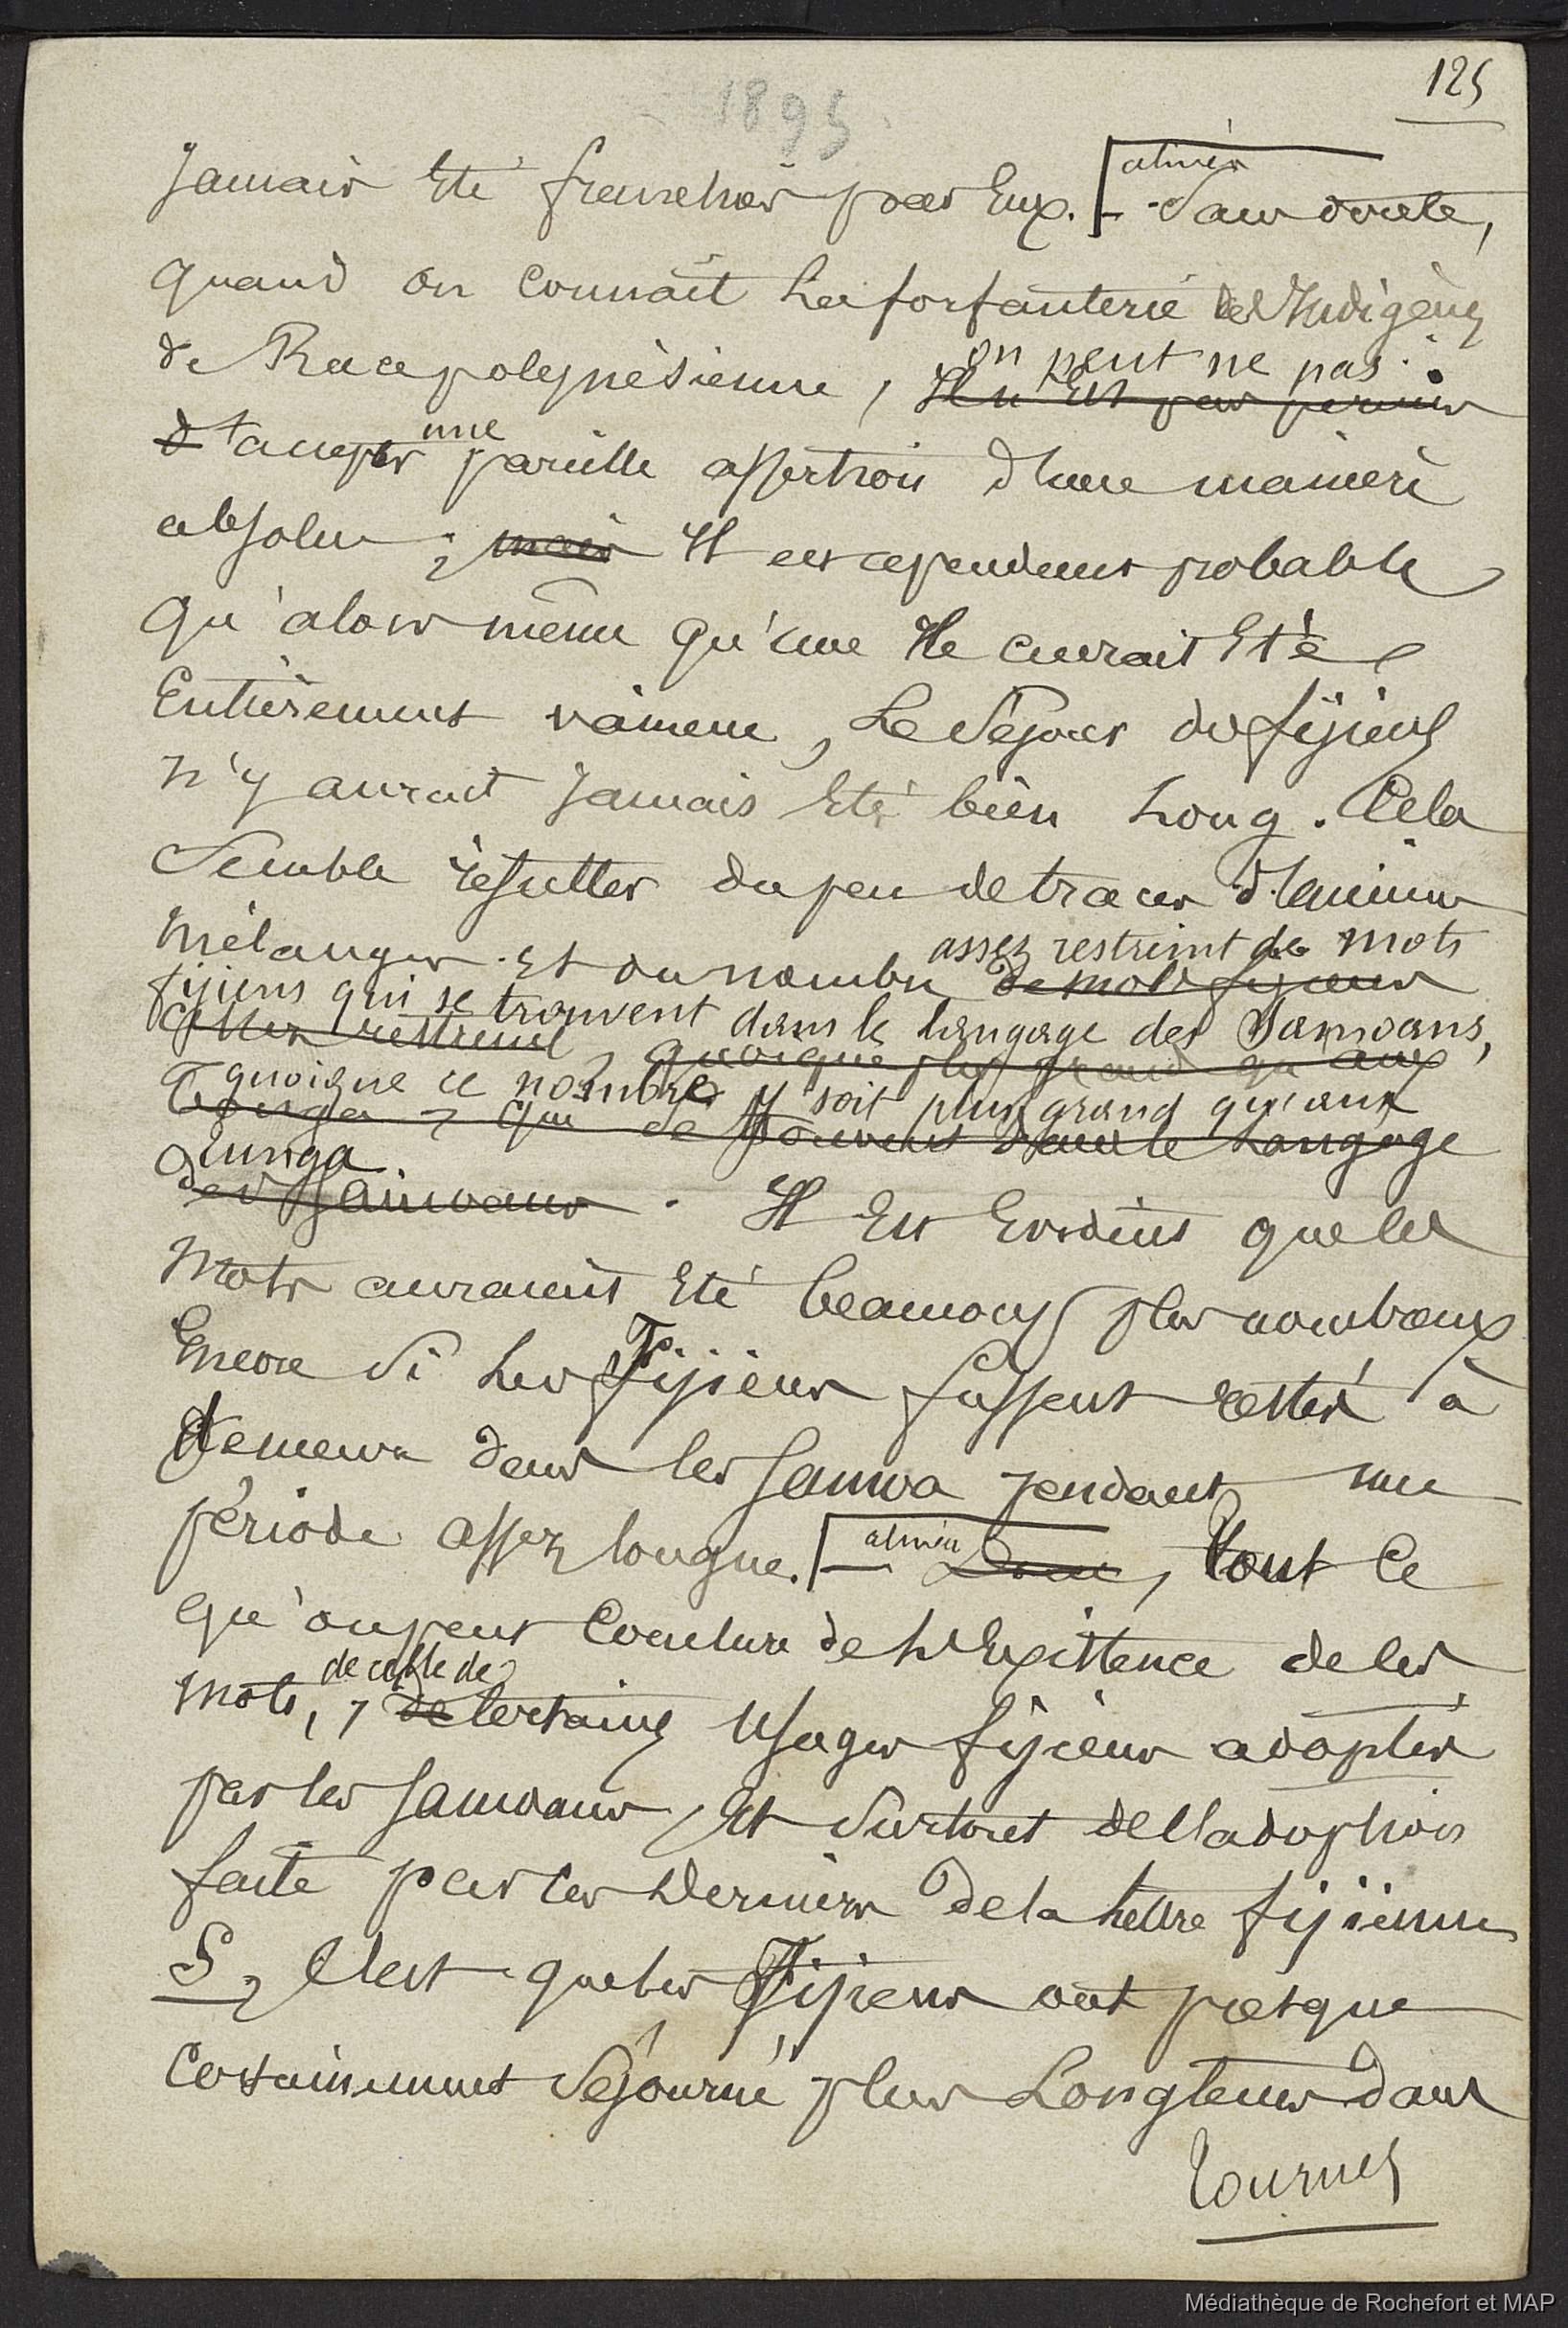 125
1895
jamais été franchies par Eux. [alinéa - Sans doute,
quand on connaît la forfanterie des Indigènes
de Race polynésienne, on peut ne pas
Il n'est pas permis
d'accepter une pareille assertion d'une manière
absolue ; mais Il est cependant probable
qu'alors même qu'une Ile aurait Eté
Entièrement vaincue, Le Séjour des fijiens
n'y aurait jamais Eté bien Long. Cela
Semble résulter du peu de traces d'anciens
mélanges et du nombre assez restreint de mots
de mots fijiens
fijiens qui se trouvent dans le langage des Samoans,
assez restreint, quoique plus grand qu'aux
quoique ce nombre y soit plus grand qu'aux
Tonga, qui se trouvent dans le Langage
Tunga.
des Samoans. Il Est Evident que les
mots auraient Eté beaucoup plus nombreux
Encore Si Les Fijiens fussent restés à
demeure dans les Samoa pendant une
période assez longue. [alinéa - Donc, tout ce
qu'on peut Conclure de L'Existence de ces
mots, de celle de
de certains usages fijiens adoptés
par les Samoans, Et Surtout de l'adoption
faite par ces Derniers de la Lettre fijienne
S, C'est que les Fijiens ont presque
Certainement Séjourné plus Longtems dans
Tournez
Médiathèque de Rochefort et MAP